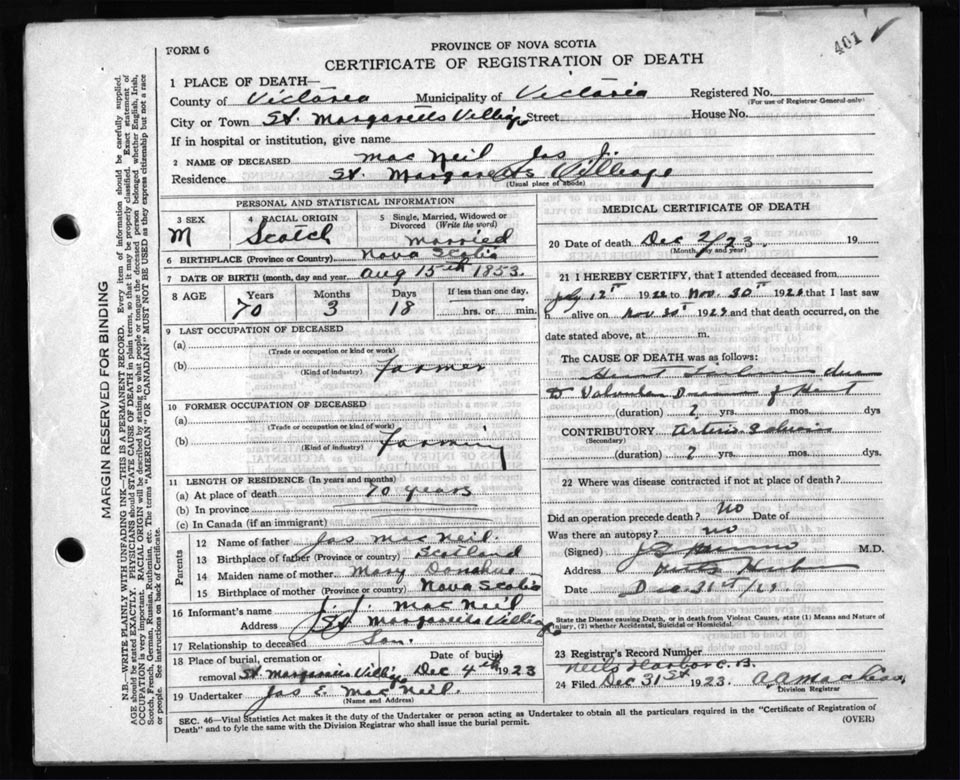 401 ✓
FORM 6
PROVINCE OF NOVA SCOTIA
CERTIFICATE OF REGISTRATION OF DEATH
1 PLACE OF DEATH—
County of Victoria Municipality of Victoria Registered No.
(For use of Registrar General only)
City or Town St. Margarets Village Street House No.
If in hospital or institution, give name
2 NAME OF DECEASED Mac Neil Jas J.
Residence St. Margarets Village
(Usual place of abode)
PERSONAL AND STATISTICAL INFORMATION
3 SEX M
4 RACIAL ORIGIN Scotch
5 Single, Married, Widowed or Divorced (Write the word) Married
6 BIRTHPLACE (Province or Country) Nova Scotia
7 DATE OF BIRTH (month, day and year) Aug 15th 1853
8 AGE Years Months Days If less than one day,
70 3 18 hrs. or min.
9 LAST OCCUPATION OF DECEASED
(a)
(Trade or occupation or kind or work)
(b) Farmer
(Kind of industry)
10 FORMER OCCUPATION OF DECEASED
(a)
(Trade or occupation or kind of work)
(b) Farming
(Kind of industry)
11 LENGTH OF RESIDENCE (In years and months)
(a) At place of death 70 years
(b) In province
(c) In Canada (if an immigrant)
Parents
12 Name of father Jas Mac Neil.
13 Birthplace of father (Province or country) Scotland
14 Maiden name of mother Mary Donahue
15 Birthplace of mother (Province or country) Nova Scotia
16 Informant's name J. J. Mac Neil
Address St Margarets Village
17 Relationship to deceased Son.
18 Place of burial, cremation or removal St. Margarets Village Date of burial Dec 4th 1923
19 Undertaker Jas E. Mac Neil.
(Name and Address)
MEDICAL CERTIFICATE OF DEATH
20 Date of death Dec 2/23. 19
(Month, day and year)
21 I HEREBY CERTIFY, that I attended deceased from
July 12th 1922 to Nov. 30th 1923 that I last saw
alive on Nov 30 1923 and that death occurred, on the
date stated above, at m.
The CAUSE OF DEATH was as follows:
Heart Failure due
to Valvular Disease of Heart
(duration) 2 yrs. mos. dys
CONTRIBUTORY Arterio Sclerosis
(Secondary)
(duration) ? yrs. mos. dys.
22 Where was disease contracted if not at place of death?
Did an operation precede death? No Date of
Was there an autopsy? no
(Signed) M.D.
Address Harbor
Date Dec 31st
State the Disease causing Death, or in death from Violent Causes, state (1) Means and Nature of Injury, (2) whether Accidental, Suicidal or Homicidal.
23 Registrar's Record Number
Neils Harbor C. B.
24 Filed Dec 31st 1923. A. A. MacLean
Division Registrar
SEC. 46—Vital Statistics Act makes it the duty of the Undertaker or person acting as Undertaker to obtain all the particulars required in the "Certificate of Registration of
Death" and to fyle the same with the Division Registrar who shall issue the burial permit. (OVER)
MARGIN RESERVED FOR BINDING
N.B.—WRITE PLAINLY WITH UNFADING INK—THIS IS A PERMANENT RECORD. Every item of information should be carefully supplied.
AGE should be stated EXACTLY. PHYSICIANS should STATE CAUSE OF DEATH in plain terms, so that it may be properly classified. Exact statement of
OCCUPATION is very important. RACIAL ORIGIN will be described by stating to what people or tongue the deceased person belonged whether English, Irish,
Scotch, French, German, Russian, Ruthenian, etc. The terms "AMERICAN" OR "CANADIAN" MUST NOT BE USED as they express citizenship but not a race
or people. See instructions on back of Certificate.